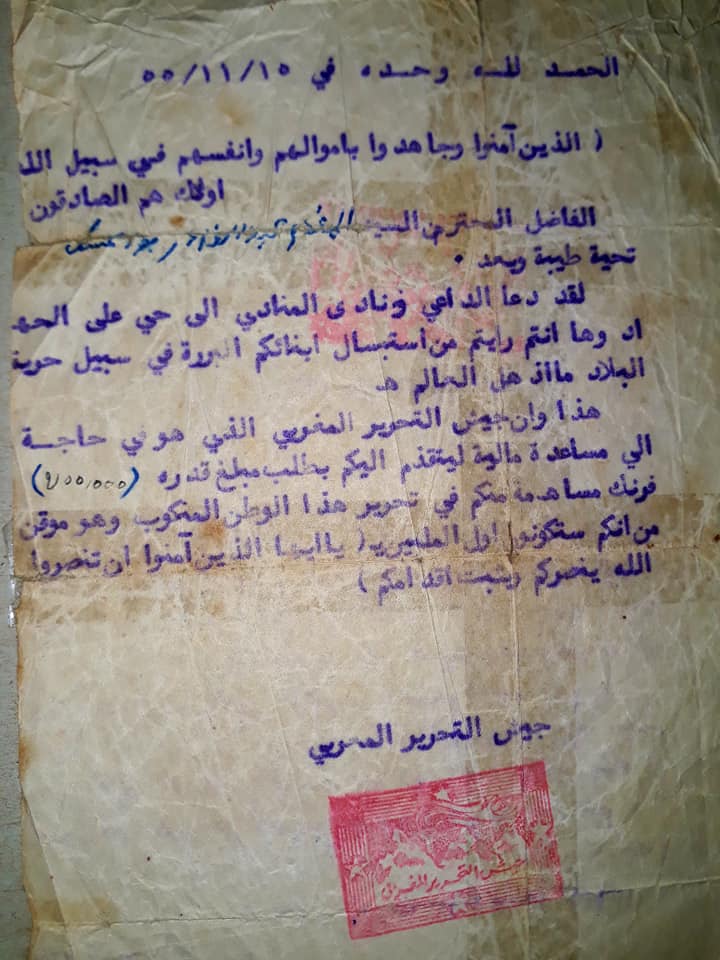 الحمد للـه وحـده في ٥٥/١١/١٥
( الذين آمنوا وجاهدوا باموالهم وانفسهم في سبيل الله
اولئك هم الصادقون
الفاضل المحترم السيد
تحية طيبة وبعد ٠
لقد دعا الداعي ونادى المنادي الى حي على الجهـ
اد وها انتم رايتم من استبسال ابنائكم البررة في سبيل حرية
البلاد مااذهل العالم هـ
هذا وان جيش التحرير المغربي الذي هو في حاجـة
الي مساعدة مالية ليتقدم اليكم بطلب مبلغ قدره
فرنك مساهمة منكم في تحرير هذا الوطن المنكوب وهو موقن
من انكم ستكونوا اول الملبين ( ياايها الذين آمنوا ان تنصروا
الله ينصركم ويثبت اقدامكم )
جيش التحرير المغربي
جيش التحرير المغربي